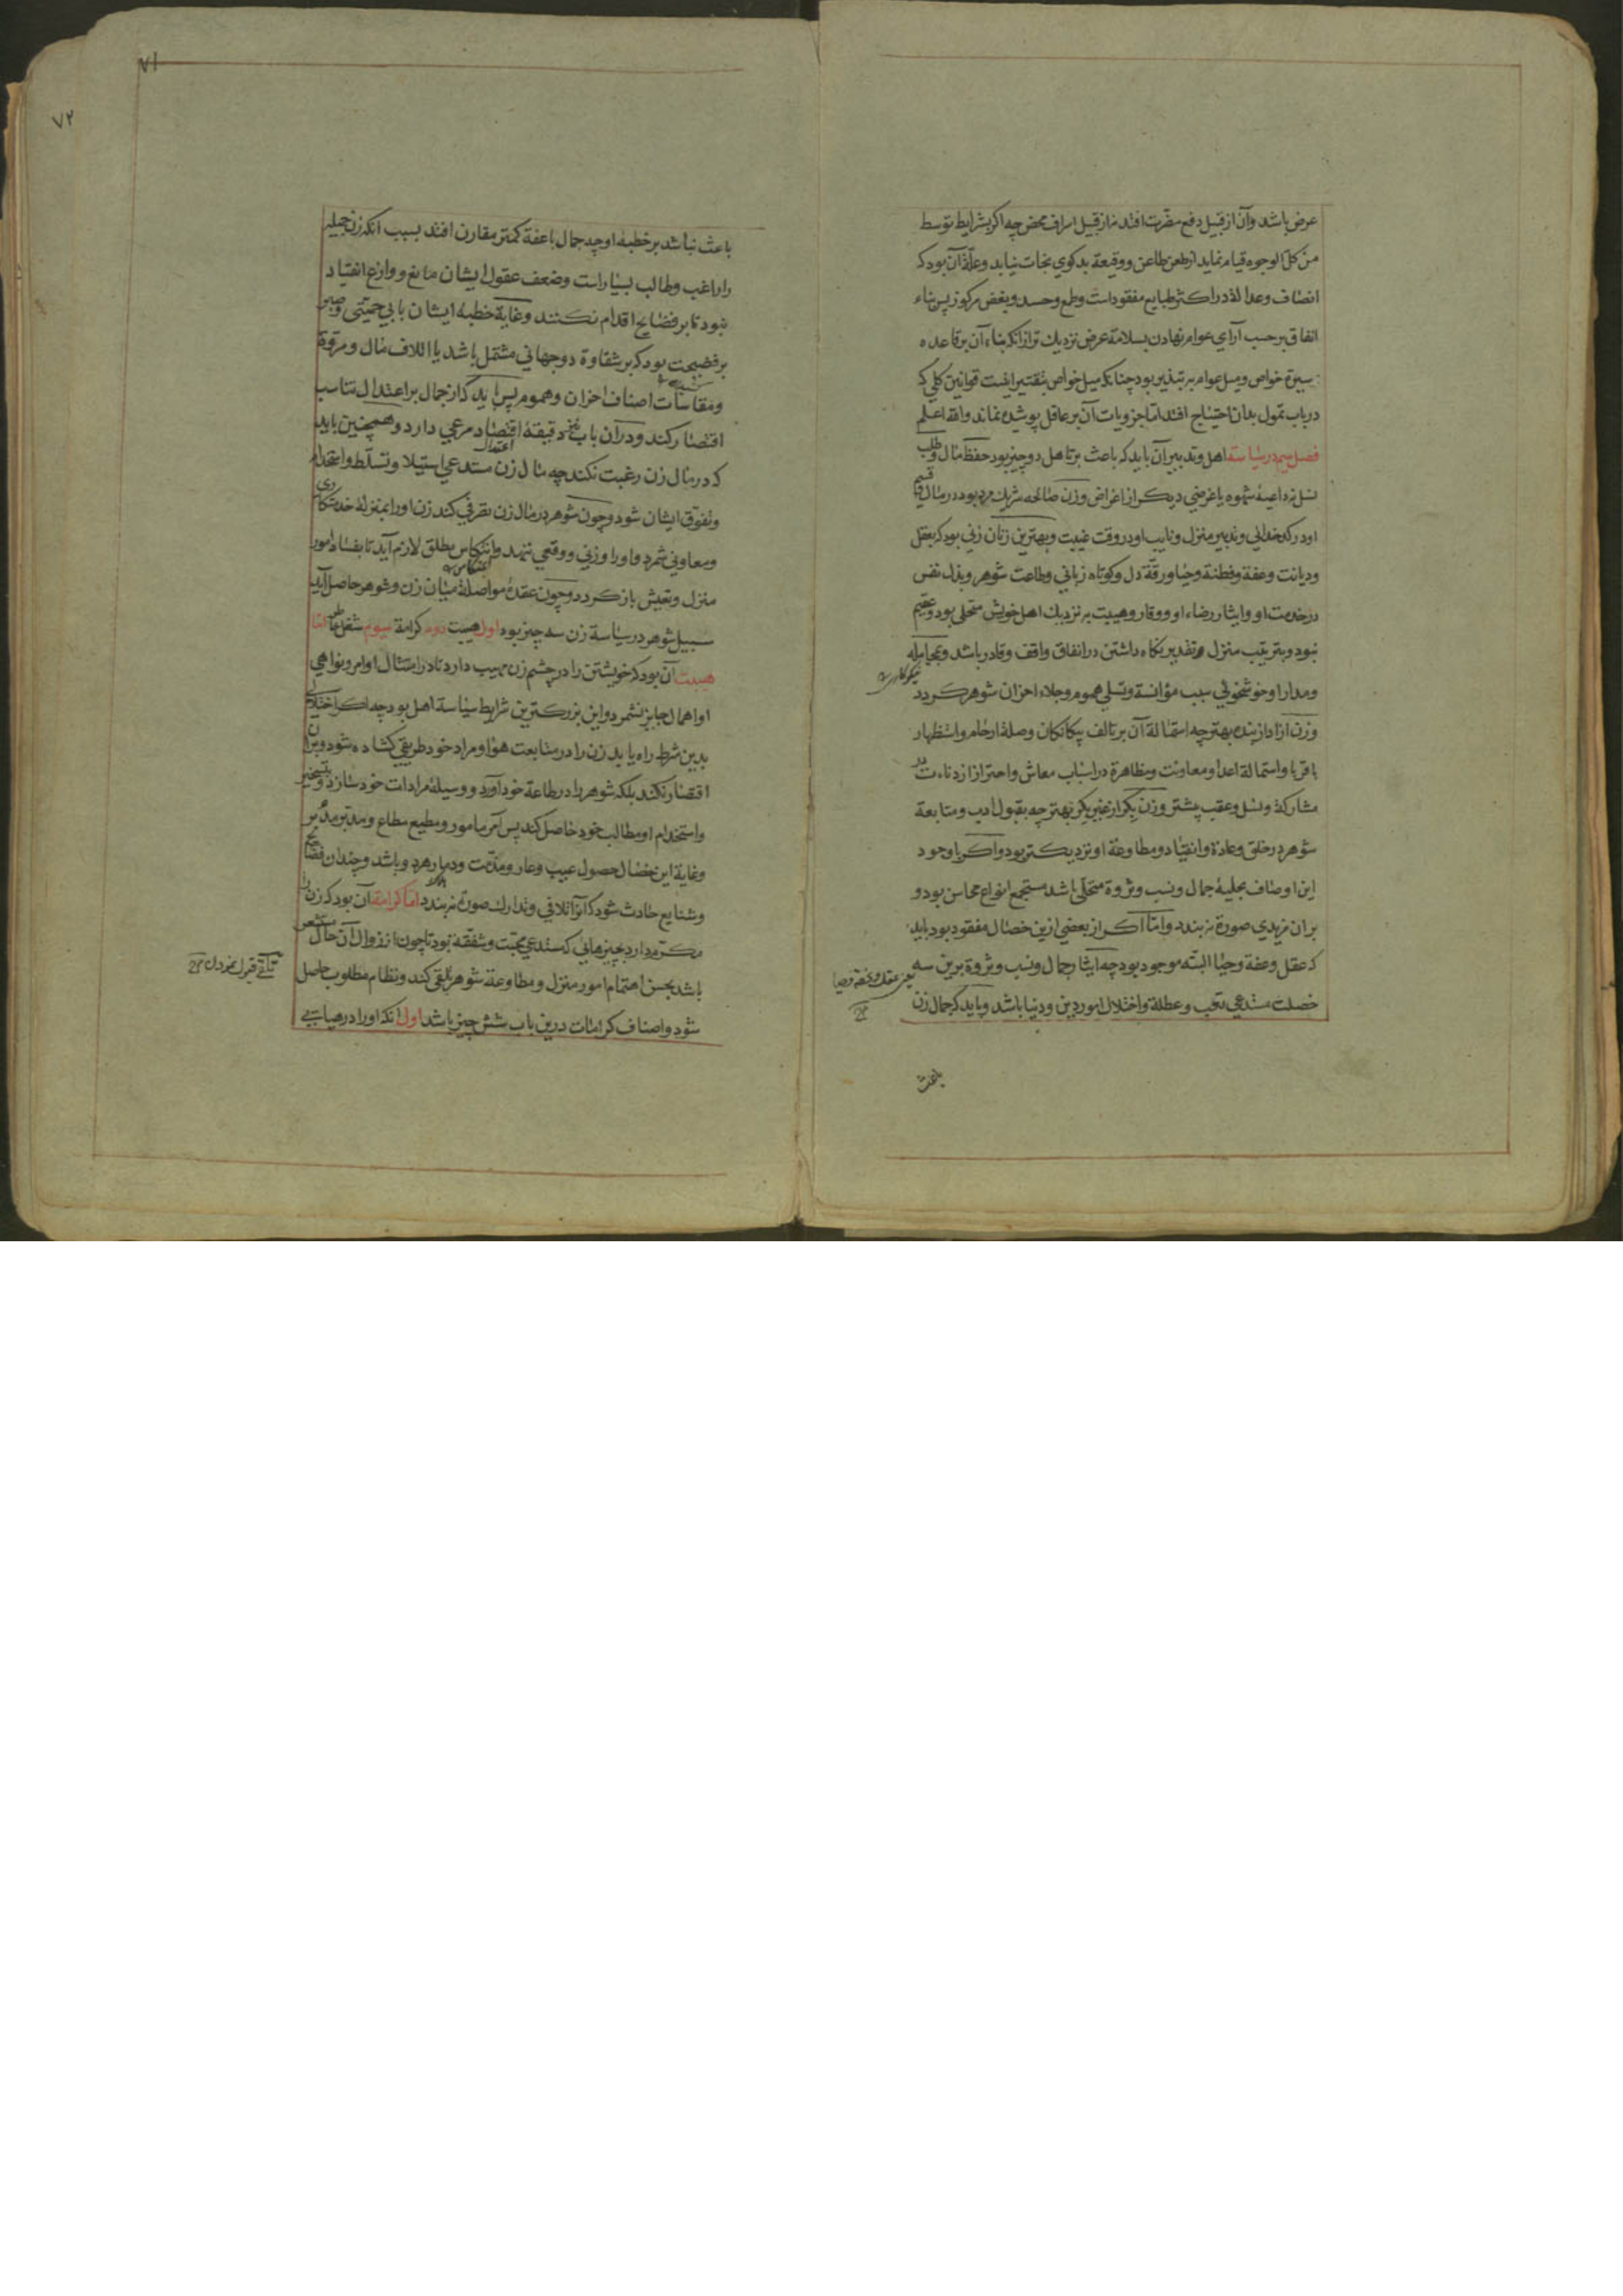 عرض باشد وآن از قبیل دفع مضرت افتد نه از قبیل اسراف محض چه اکر بشرایط توسط
من کل الوجوه قیام نماید از طعن طاعن و وقیعة بدکوی نجات نیابد وعلة آن بود که
انصاف وعدالة در اکثر طبایع مفقود است وطمع وحسد وبغض مرکوز پس بناء
انفاق بر حسب آرای عوام نهادن بسلامة عرض نزدیک تر از انکه بناء آن بر قاعده
سیرة خواص ومیل عوام به تبذیر بود چنانکه میل خواص بتقتیر اینست قوانین کلی که
در باب تمول بدان احتیاج افتد اما جزویات آن بر عاقل پوشیده نماند والله اعلم
فصل سیم در سیاسة اهل وتدبیر آن باید که باعث بر تاهل دو چیز بود حفظ مال وطلب
نسل نه داعیه شهوه یا غرضی دیکر از اغراض وزن صالحه شریک مرد بود در مال وقسیم
او در کدخدایی وتدبیر منزل ونایب او در وقت غیبت وبهترین زنان زنی بود که بعقل
ودیانت وعفة وفطنة وحیا ورقة دل وکوتاه زبانی وطاعت شوهر وبذل نفس
در خدمت او وایثار رضاء او ووقار وهیبت به نزدیک اهل خویش متحلی بود وعقیم
نبود وبترتیب منزل وتقدیر نکاه داشتن در انفاق واقف وقادر باشد وبمجامله
نیکوکاری
ومدارا وخوشخویی سبب مؤانسة وتسلی هموم وجلاء احزان شوهر کردد
وزن ازاد از بنده بهتر چه استمالة آن بر تالف بیکانکان وصلة ارحام واستظهار
باقربا واستمالة اعدا ومعاونت ومظاهرة در اسباب معاش واحتراز از دناءت در
مشارکة ونسل وعقب بیشتر وزن بکر از غیر بکر بهتر چه بقبول ادب ومتابعة
شوهر در خلق وعادة وانقیاد ومطاوعة او نزدیکتر بود واکر با وجود
این اوصاف بحلیة جمال ونسب وثروة متحلی باشد مستجمع انواع محاسن بود و
بران مزیدی صورة نه بندد واما اکر از بعضی ازین خصال مفقود بود باید
که عقل وعفة وحیا البته موجود بود چه ایثار جمال ونسب وثروة برین سه
یعنی عقل وعفة وحیا
خصلت مستدعی تعب وعطلة واختلال امور دین ودنیا باشد وباید که جمال زن
باعث
۷۱
۷۲
باعث نباشد بر خطبة او چه جمال باعفة کمتر مقارن افتد بسبب انکه زن جمیله
را راغب وطالب بسیار است وضعف عقول ایشان مانع ووازع انقیاد
نبود تا بر فضایح اقدام نکنند وغایة خطبة ایشان یا بی حمیتی وصبر
بر فضیحت بود که بر شقاوة دوجهانی مشتمل باشد یا اتلاف مال ومروة
ومقاسات اصناف احزان وهموم پس باید که از جمال بر اعتدال تناسب
اقتصار کند ودران باب نیز دقیقة اقتصاد مرعی دارد وهمچنین باید
اعتدال
که در مال زن رغبت نکند چه مال زن مستدعی استیلا وتسلط واستخدام
وتفوق ایشان شود وچون شوهر در مال زن تصرفی کند زن او را بمنزلة خدمتکاری
ومعاونی شمرد واو را وزنی ووقعی ننهد وانتکاس مطلق لازم آید تا بفساد امور
منزل وتعیش باز کردد وچون عقدة مواصلة میان زن وشوهر حاصل آید
سبیل شوهر در سیاسة زن سه چیز بود اول هیبت دوم کرامة سیوم شغل خاطر اما
هیبت آن بود که خویشتن را در چشم زن مهیب دارد تا در امتثال اوامر ونواهی
او اهمال جایز نشمرد واین بزرکترین شرایط سیاسة اهل بود چه اکر اختلالی
بدین شرط راه یابد زن را در متابعت هوا ومراد خود طریقی کشاده شود وبران
اقتصار نکند بلکه شوهر را در طاعة خود آورد ووسیلة مرادات خود سازد وبتسخیر
واستخدام او مطالب خود حاصل کند پس آمر مامور ومطیع مطاع ومدبر مدبر
وغایة این خصال حصول عیب وعار ومذمت ودمار هردو باشد وچندان فضایح
وشنایع حادث شود که انرا تلافی وتدارک صورة نه بندد اما کرامة آن بود که زن را
مکرم دارد بچیزهایی که مستدعی محبت وشفقة بود تا چون از زوال آن حال مستشعر
باشد بحسن اهتمام امور منزل ومطاوعة شوهر تلقی کند ونظام مطلوب حاصل
تلقی قبول نمودن
شود واصناف کرامات درین باب شش چیز باشد اول انکه او را در هیاتی